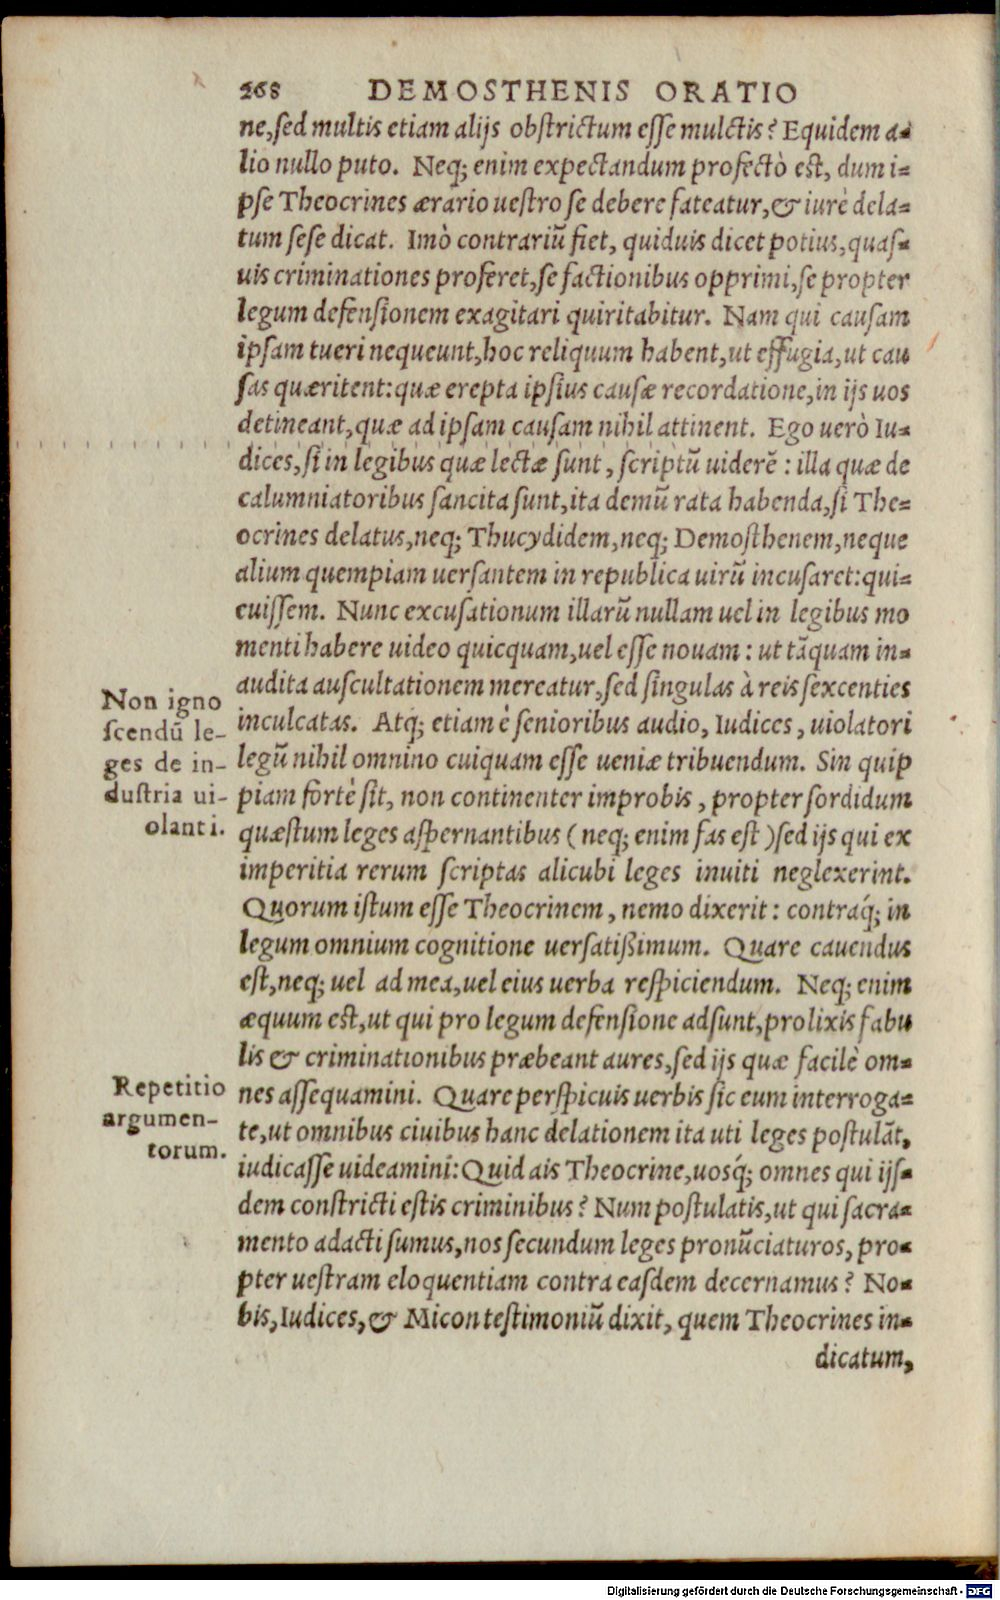 268 DEMOSTHENIS ORATIO
ne, sed multis etiam alijs obstrictum esse mulctis? Equidem a-
lio nullo puto. Neq; enim expectandum profectò est, dum i-
pse Theocrines ærario uestro se debere fateatur, & iurè dela-
tum sese dicat. Imò contrariũ fiet, quiduis dicet potius, quas-
uis criminationes proferet, se factionibus opprimi, se propter
legum defensionem exagitari quiritabitur. Nam qui causam
ipsam tueri nequeunt, hoc reliquum habent, ut effugia, ut cau
sas quæritent: quæ erepta ipsius causæ recordatione, in ijs uos
detineant, quæ ad ipsam causam nihil attinent. Ego uerò Iu-
dices, si in legibus quæ lectæ sunt, scriptũ uiderẽ: illa quæ de
calumniatoribus sancita sunt, ita demũ rata habenda, si The-
ocrines delatus, neq; Thucydidem, neq; Demosthenem, neque
alium quempiam uersantem in republica uirũ incusaret: qui-
euissem. Nunc excusationum illarũ nullam uel in legibus mo
menti habere uideo quicquam, uel esse nouam: ut tãquam in-
audita auscultationem mereatur, sed singulas à reis sexcenties
inculcatas. Atq; etiam è senioribus audio, Iudices, uiolatori
legũ nihil omnino cuiquam esse ueniæ tribuendum. Sin quip
piam fortè sit, non continenter improbis, propter sordidum
quæstum leges aspernantibus (neq; enim fas est) sed ijs qui ex
imperitia rerum scriptas alicubi leges inuiti neglexerint.
Quorum istum esse Theocrinem, nemo dixerit: contraq́; in
legum omnium cognitione uersatißimum. Quare cauendus
est, neq; uel ad mea, uel eius uerba respiciendum. Neq; enim
æquum est, ut qui pro legum defensione adsunt, prolixis fabu
lis & criminationibus præbeant aures, sed ijs quæ facilè om-
nes assequamini. Quare perspicuis uerbis sic eum interroga-
te, ut omnibus ciuibus hanc delationem ita uti leges postulãt,
iudicasse uideamini: Quid ais Theocrine, uosq́; omnes qui ijs-
dem constricti estis criminibus? Num postulatis, ut qui sacra-
mento adacti sumus, nos secundum leges pronũciaturos, pro-
pter uestram eloquentiam contra easdem decernamus? No-
bis, Iudices, & Micon testimoniũ dixit, quem Theocrines in-
dicatum,
Non igno
scendũ le-
ges de in-
dustria ui-
olanti.
Repetitio
argumen-
torum.
Digitalisierung gefördert durch die Deutsche Forschungsgemeinschaft - DFG